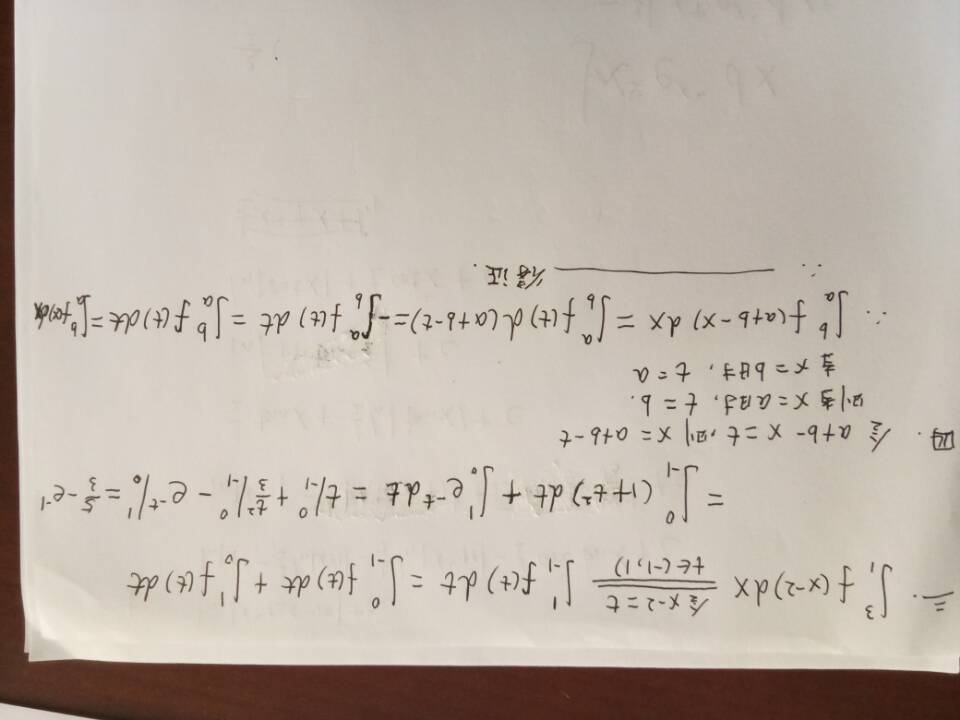 三. ∫₁³ f(x-2)dx 令x-2=t t∈(-1,1) ∫₋₁¹ f(t)dt = ∫₋₁⁰ f(t)dt + ∫₀¹ f(t)dt
= ∫₋₁⁰ (1+t²)dt + ∫₀¹ e⁻ᵗdt = t|₋₁⁰ + t²/3|₋₁⁰ - e⁻ᵗ|₀¹ = 5/3 - e⁻¹
四. 令 a+b-x=t,则 x=a+b-t
则当 x=a时, t=b.
当 x=b时, t=a
∴ ∫ₐᵇ f(a+b-x)dx = ∫_b^a f(t)d(a+b-t) = -∫_b^a f(t)dt = ∫ₐᵇ f(t)dt = ∫ₐᵇ f(x)dx
∴ 得证.